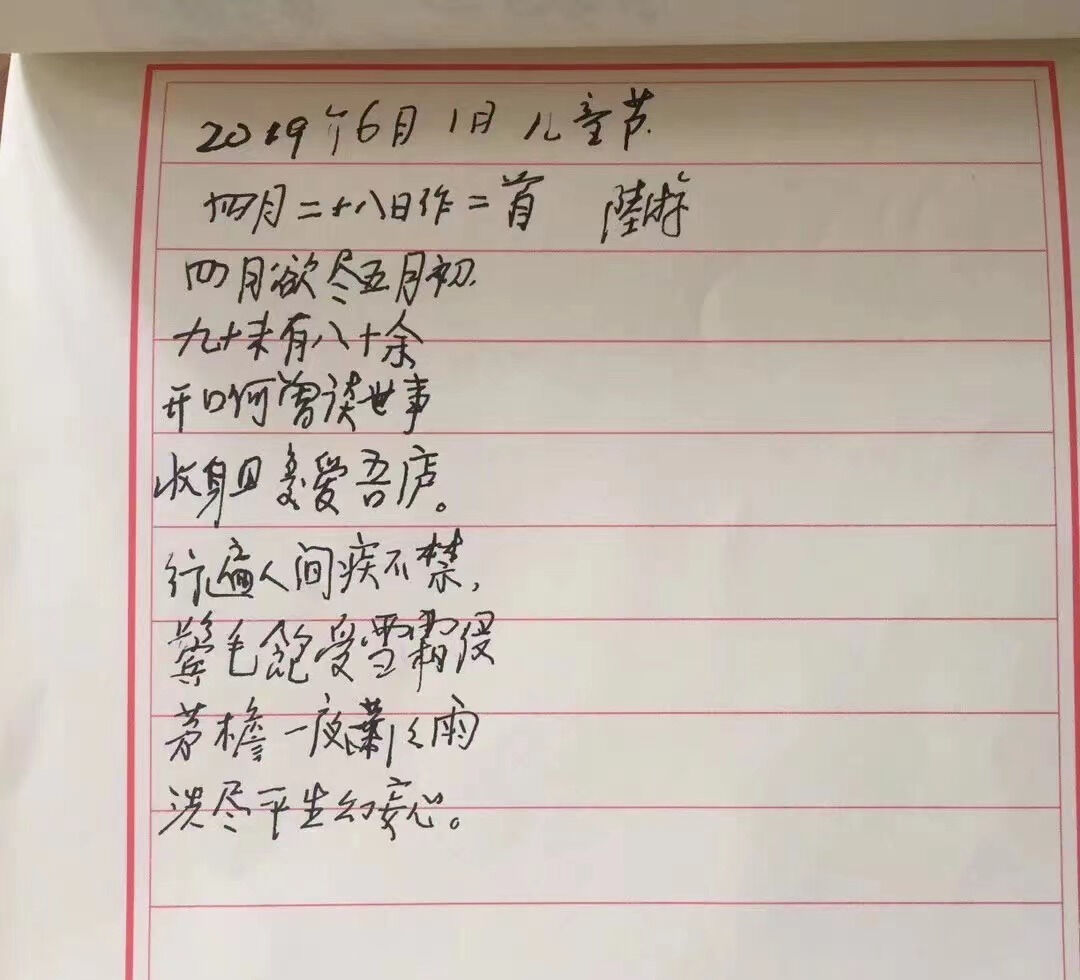 2019年6月1日儿童节.
四月二十八日作二首 陸游
四月欲尽五月初.
九十未有八十余
开口何曾谈世事
收身且复爱吾庐。
行遍人间病不禁,
鬓毛饱受雪霜侵
茅檐一夜萧々雨
洗尽平生幻妄心。